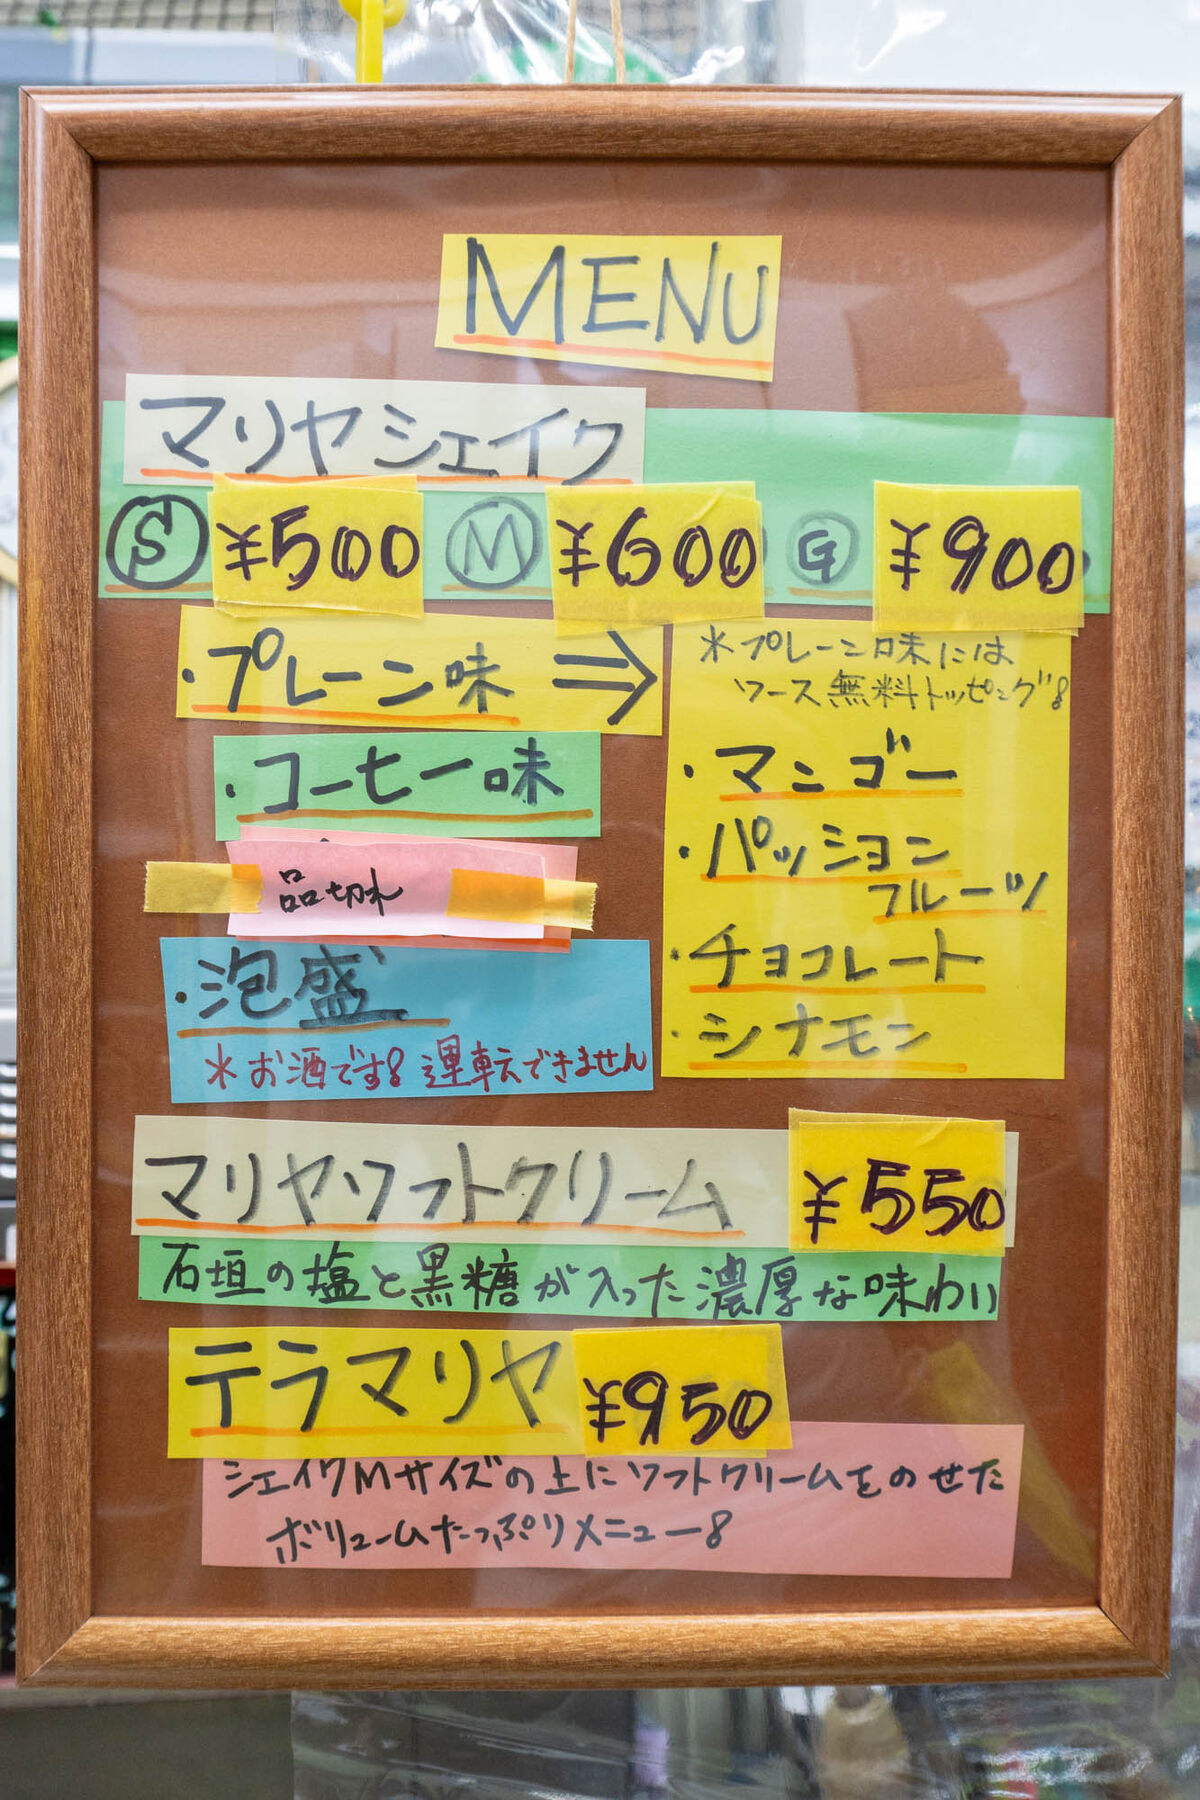 MENU
マリヤシェイク
Ⓢ ¥500 Ⓜ ¥600 Ⓖ ¥900
・プレーン味 ⇒
・コーヒー味
品切れ
・泡盛
＊お酒です！運転できません
＊プレーン味には
ソース無料トッピング！
・マンゴー
・パッション
フルーツ
・チョコレート
・シナモン
マリヤソフトクリーム ¥550
石垣の塩と黒糖が入った濃厚な味わい
テラマリヤ ¥950
シェイクMサイズの上にソフトクリームをのせた
ボリュームたっぷりメニュー！